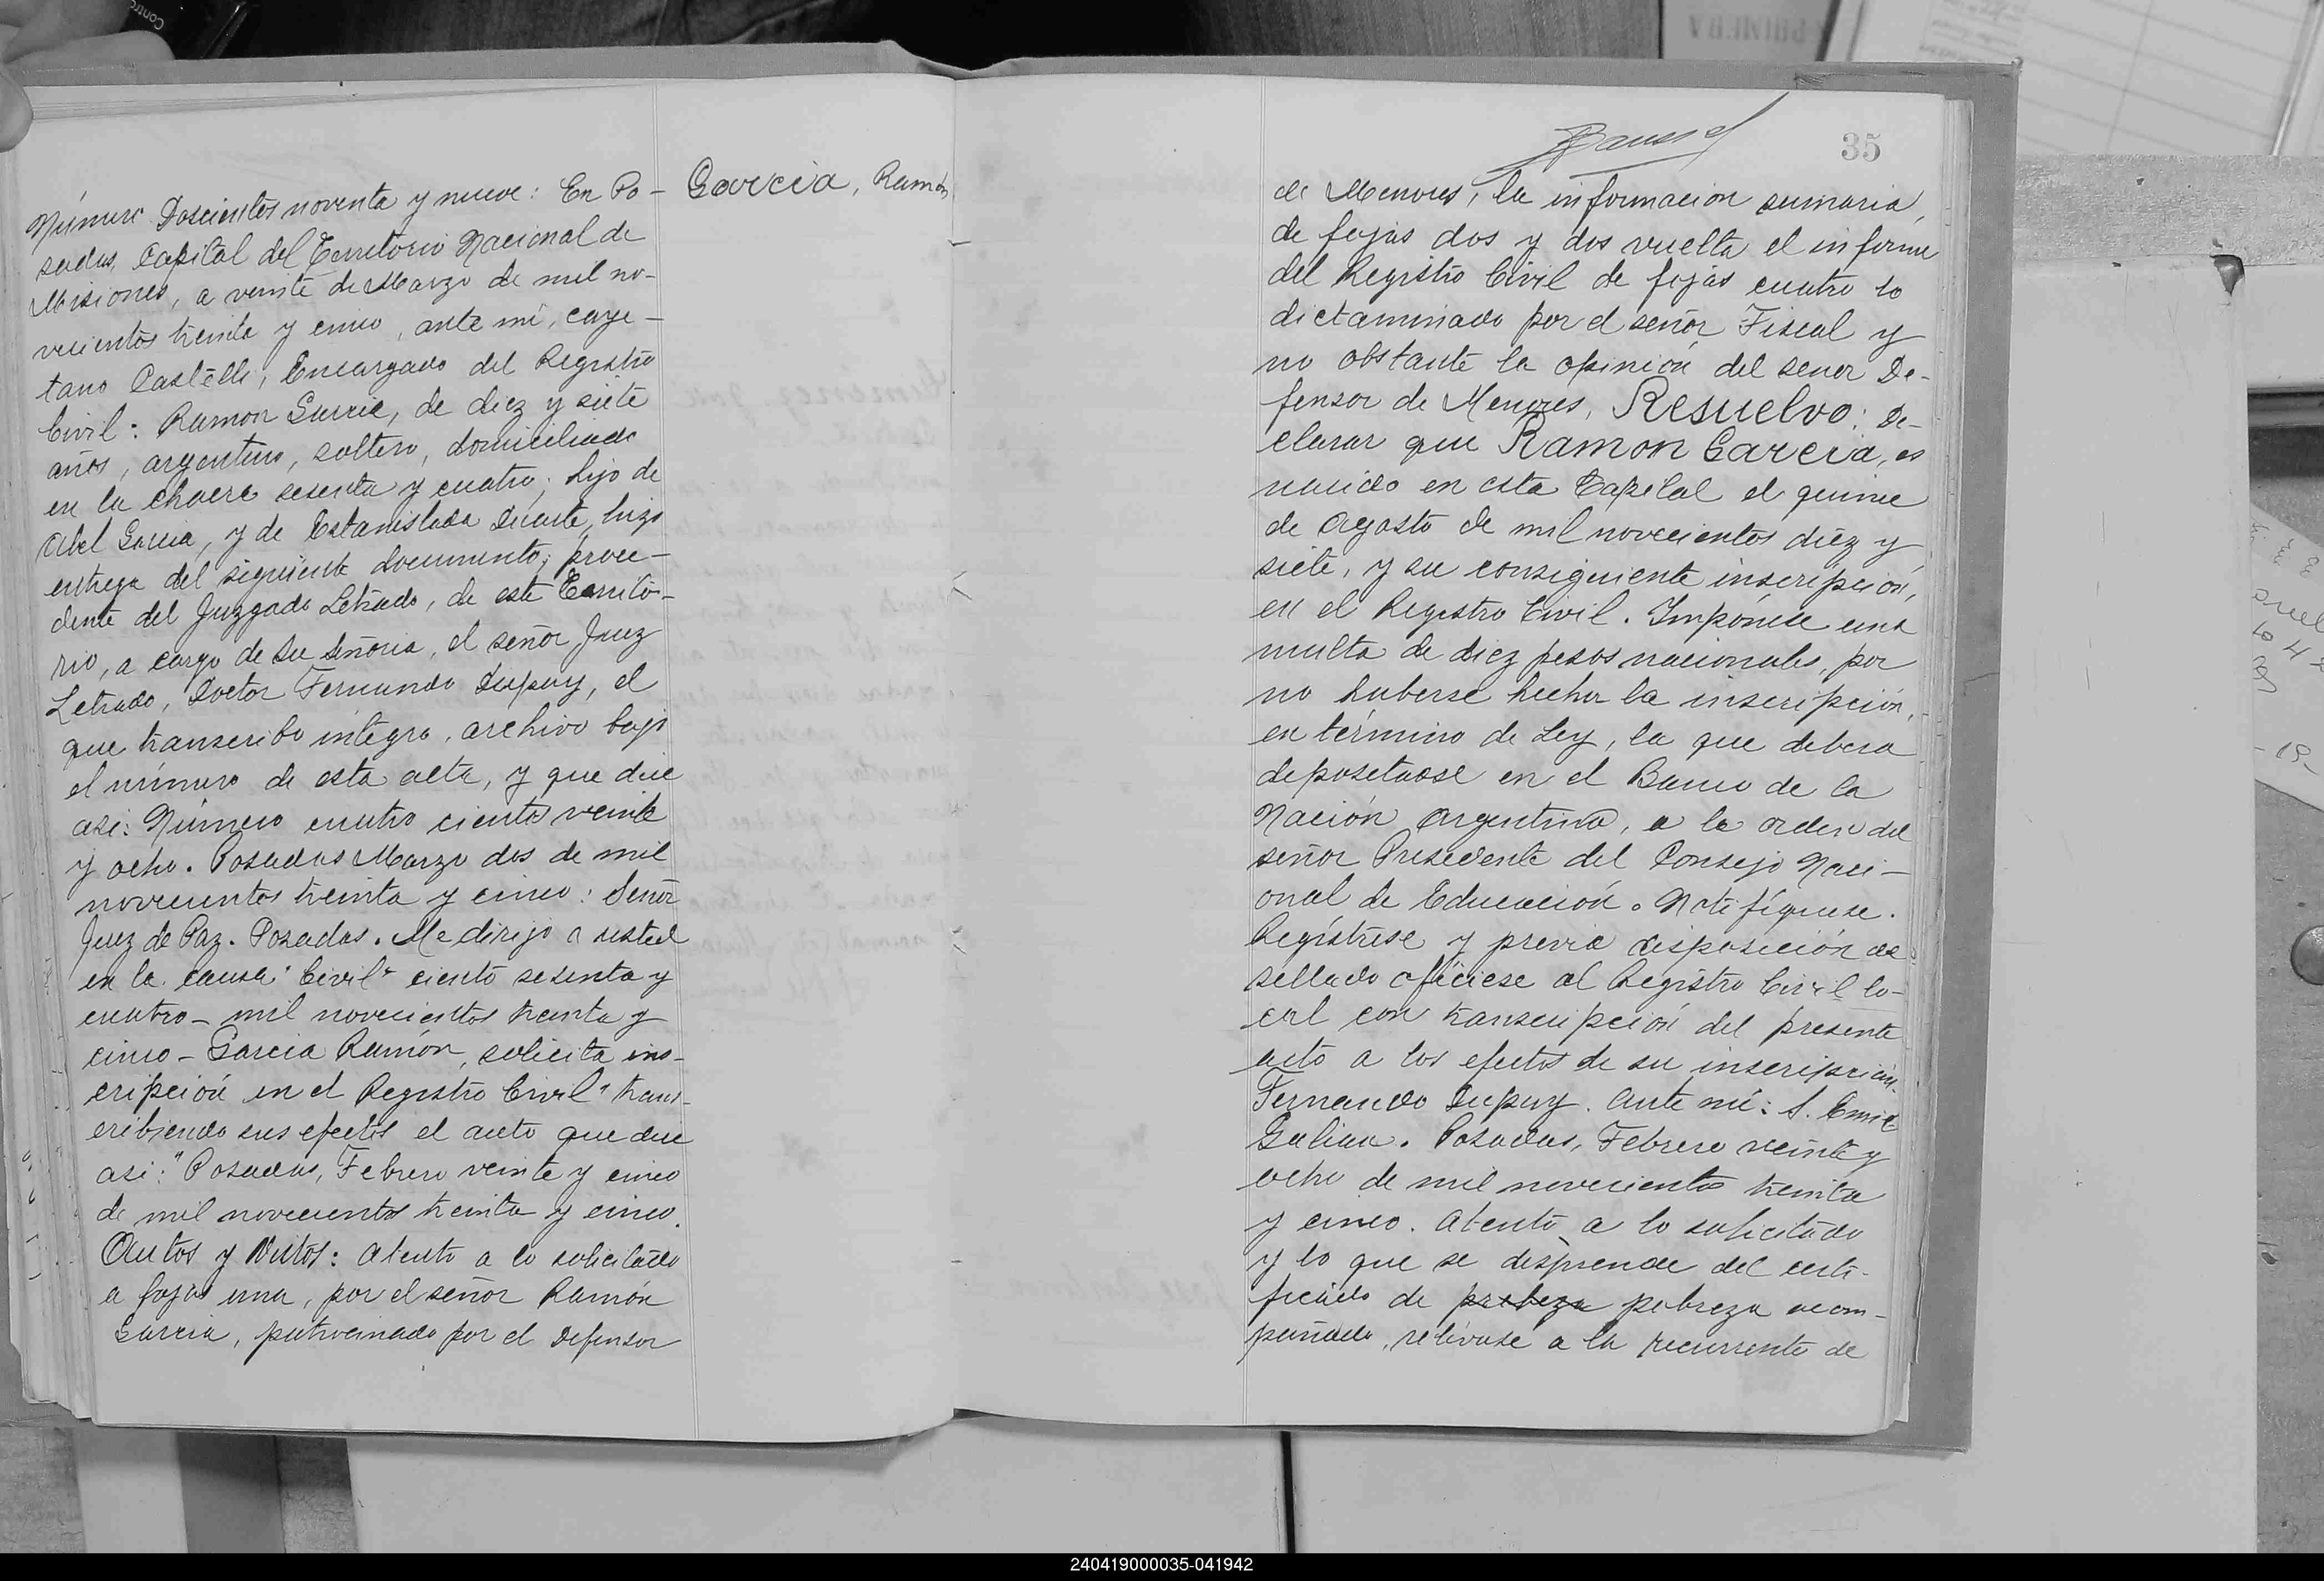 Número Doscientos noventa y nueve: En Po-
sadas, Capital del Territorio Nacional de
Misiones, a veinte de Marzo de mil no-
vecientos treinta y cinco, ante mí, Caye-
tano Castelli, Encargado del Registro
Civil: Ramon Garcia, de diez y siete
años, argentino, soltero, domiciliado
en la chacra sesenta y cuatro; hijo de
Abel Garcia, y de Estanislada Duarte, hizo
entrega del siguiente documento; proce-
dente del Juzgado Letrado, de este Territo-
rio, a cargo de Su Señoria, el señor Juez
Letrado, Doctor Fernando Dupuy, el
que transcribo integro, archivo bajo
el número de esta acta, y que dice
asi: Número cuatro cientos veinte
y ocho. Posadas Marzo dos de mil
novecientos treinta y cinco: Señor
Juez de Paz. Posadas. Me dirijo a usted
en la causa "Civil" ciento sesenta y
cuatro - mil novecientos treinta y
cinco - Garcia Ramón, solicita ins-
cripción en el Registro Civil" trans-
cribiendo sus efectos el auto que dice
asi: "Posadas, Febrero veinte y cinco
de mil novecientos treinta y cinco.
Autos y Vistos: Atento a lo solicitado
a fojas una, por el señor Ramón
Garcia, patrocinado por el Defensor
Garcia, Ramón
35
de Menores, la informacion sumaria,
de fojas dos y dos vuelta el informe
del Registro Civil de fojas cuatro lo
dictaminado por el señor Fiscal y
no obstante la opinión del señor De-
fensor de Menores, Resuelvo: De-
clarar que Ramon Garcia, es
nacido en esta Capital el quince
de Agosto de mil novecientos diez y
siete, y su consiguiente inscripción,
en el Registro Civil. Impónese una
multa de diez pesos nacionales, por
no haberse hecho la inscripción,
en término de Ley, la que debera
depositarse en el Banco de la
Nación Argentina, a la orden del
señor Presidente del Consejo Naci-
onal de Educación. Notifíquese.
Regístrese y previa disposición de
sellado ofíciese al Registro Civil lo-
cal con transcripción del presente
auto a los efectos de su inscripción.
Fernando Dupuy. Ante mí: S. Emile
Galian. Posadas, Febrero veinte y
ocho de mil novecientos treinta
y cinco. Atento a lo solicitado
y lo que se desprende del certi-
ficado de probeza pobreza acom-
pañado, relévase a la recurrente de
240419000035-041942